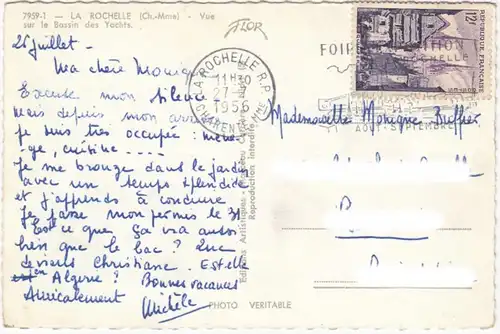 7959-1 — LA ROCHELLE (Ch.-Mme) - Vue
sur le Bassin des Yachts.
26 juillet -
Ma chère Monique
Excuse mon silence
mais depuis mon arrivée
je suis très occupée : ména-
ge, cuisine ....
Je me bronze dans le jardin
avec un temps splendide
et j'apprends à conduire
Je passe mon permis le 31
Est ce que ça ira aussi
bien que le bac ? Que
deviens Christiane. Est elle
en Algérie ? Bonnes vacances
Amicalement
Michèle
FLOR
Reproduction Interdite
Editions Artistiques
PHOTO VERITABLE
LA ROCHELLE R.P.
11H30
27-7
1956
CHARENTE MME
FOIRE EXPOSITION
LA ROCHELLE
AOUT-SEPTEMBRE
12F
REPUBLIQUE FRANÇAISE
Mademoiselle Monique